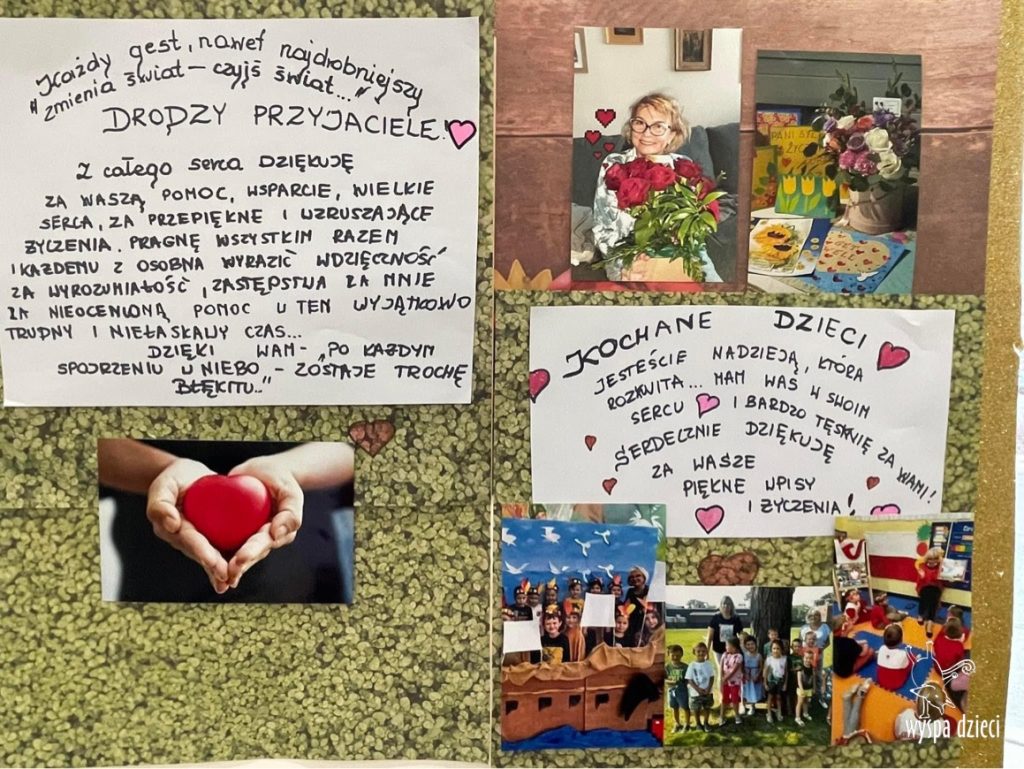 "Każdy gest, nawet najdrobniejszy
zmienia świat – czyjś świat..."
DRODZY PRZYJACIELE!
Z całego serca DZIĘKUJĘ
ZA WASZĄ POMOC, WSPARCIE, WIELKIE
SERCA, ZA PRZEPIĘKNE I WZRUSZAJĄCE
ŻYCZENIA. PRAGNĘ WSZYSTKIM RAZEM
I KAŻDEMU Z OSOBNA WYRAZIĆ WDZIĘCZNOŚĆ
ZA WYROZUMIAŁOŚĆ, ZASTĘPSTWA ZA MNIE
ZA NIEOCENIONĄ POMOC W TEN WYJĄTKOWO
TRUDNY I NIEŁASKAWY CZAS...
DZIĘKI WAM - "PO KAŻDYM
SPOJRZENIU W NIEBO, – ZOSTAJE TROCHĘ
BŁĘKITU.."
PANI
KOCHANE DZIECI
JESTEŚCIE NADZIEJĄ, KTÓRA
ROZKWITA... MAM WAS W SWOIM
SERCU I BARDZO TĘSKNIĘ ZA WAMI!
SERDECZNIE DZIĘKUJĘ
ZA WASZE
PIĘKNE WPISY
I ŻYCZENIA!
wyspa dzieci